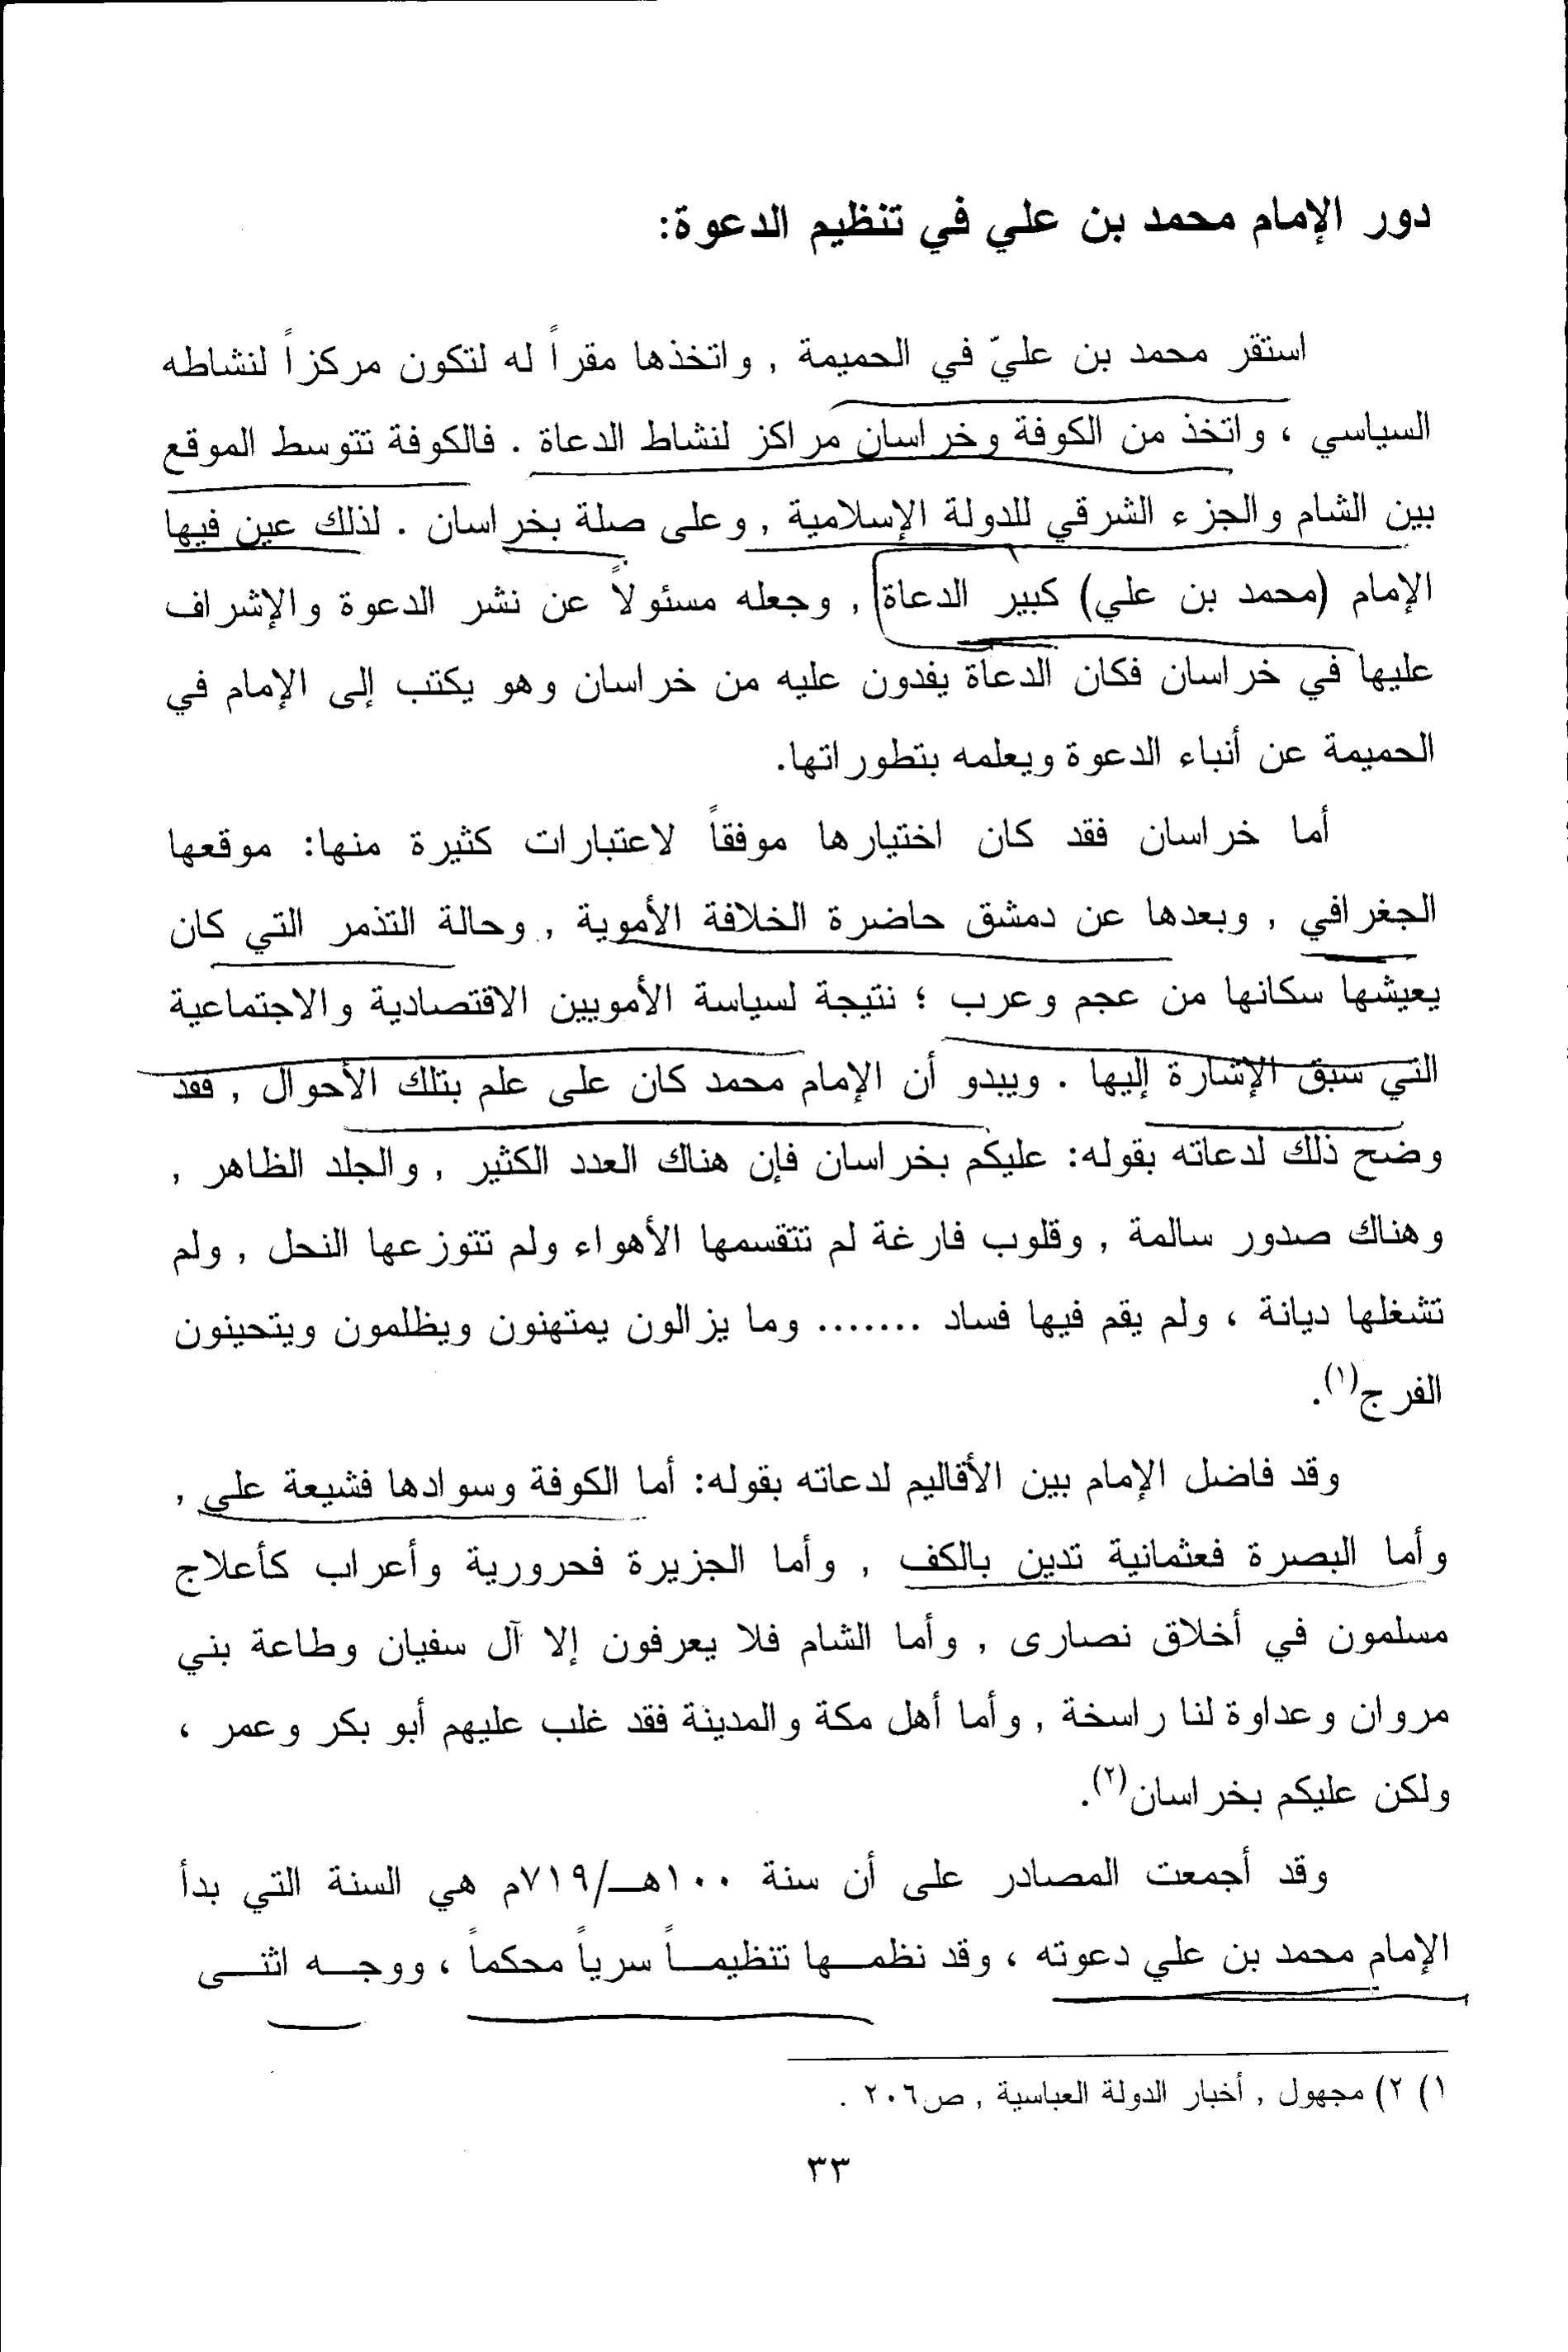 دور الإمام محمد بن علي في تنظيم الدعوة:
استقر محمد بن عليّ في الحميمة , واتخذها مقراً له لتكون مركزاً لنشاطه
السياسي ، واتخذ من الكوفة وخراسان مراكز لنشاط الدعاة . فالكوفة تتوسط الموقع
بين الشام والجزء الشرقي للدولة الإسلامية , وعلى صلة بخراسان . لذلك عين فيها
الإمام (محمد بن علي) كبير الدعاة , وجعله مسئولاً عن نشر الدعوة والإشراف
عليها في خراسان فكان الدعاة يفدون عليه من خراسان وهو يكتب إلى الإمام في
الحميمة عن أنباء الدعوة ويعلمه بتطوراتها.
أما خراسان فقد كان اختيارها موفقاً لاعتبارات كثيرة منها: موقعها
الجغرافي , وبعدها عن دمشق حاضرة الخلافة الأموية , وحالة التذمر التي كان
يعيشها سكانها من عجم وعرب ؛ نتيجة لسياسة الأمويين الاقتصادية والاجتماعية
التي سبق الإشارة إليها . ويبدو أن الإمام محمد كان على علم بتلك الأحوال , فقد
وضح ذلك لدعاته بقوله: عليكم بخراسان فإن هناك العدد الكثير , والجلد الظاهر ,
وهناك صدور سالمة , وقلوب فارغة لم تتقسمها الأهواء ولم تتوزعها النحل , ولم
تشغلها ديانة ، ولم يقم فيها فساد ....... وما يزالون يمتهنون ويظلمون ويتحينون
الفرج(١).
وقد فاضل الإمام بين الأقاليم لدعاته بقوله: أما الكوفة وسوادها فشيعة علي ,
وأما البصرة فعثمانية تدين بالكف , وأما الجزيرة فحرورية وأعراب كأعلاج
مسلمون في أخلاق نصارى , وأما الشام فلا يعرفون إلا آل سفيان وطاعة بني
مروان وعداوة لنا راسخة , وأما أهل مكة والمدينة فقد غلب عليهم أبو بكر وعمر ،
ولكن عليكم بخراسان(٢).
وقد أجمعت المصادر على أن سنة ١٠٠هـ/٧١٩م هي السنة التي بدأ
الإمام محمد بن علي دعوته ، وقد نظمـها تنظيمـاً سرياً محكماً ، ووجـه اثنـى
١) ٢) مجهول , أخبار الدولة العباسية , ص٢٠٦ .
٣٣